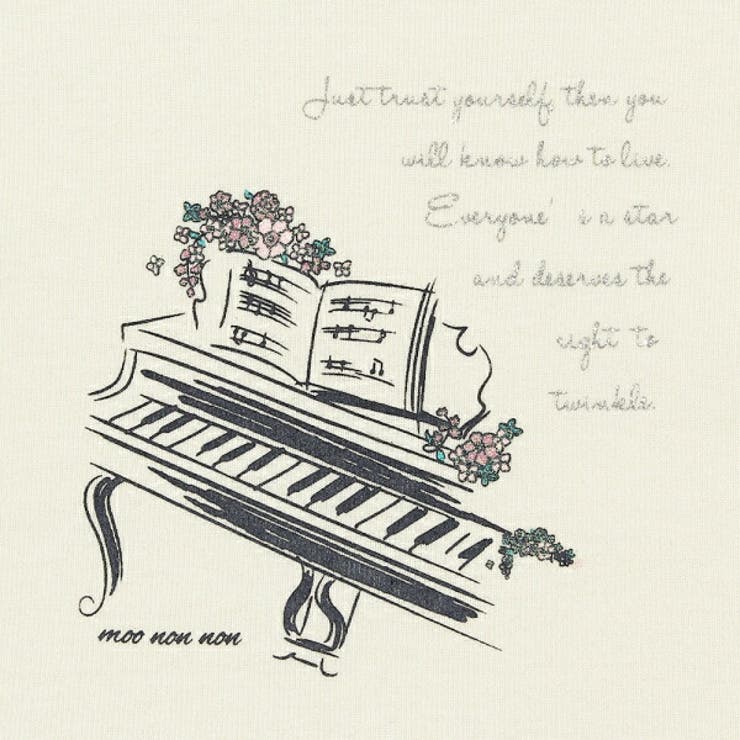 Just trust yourself, then you
will know how to live.
Everyone' s a star
and deserves the
right to
twinkle.
moo non non